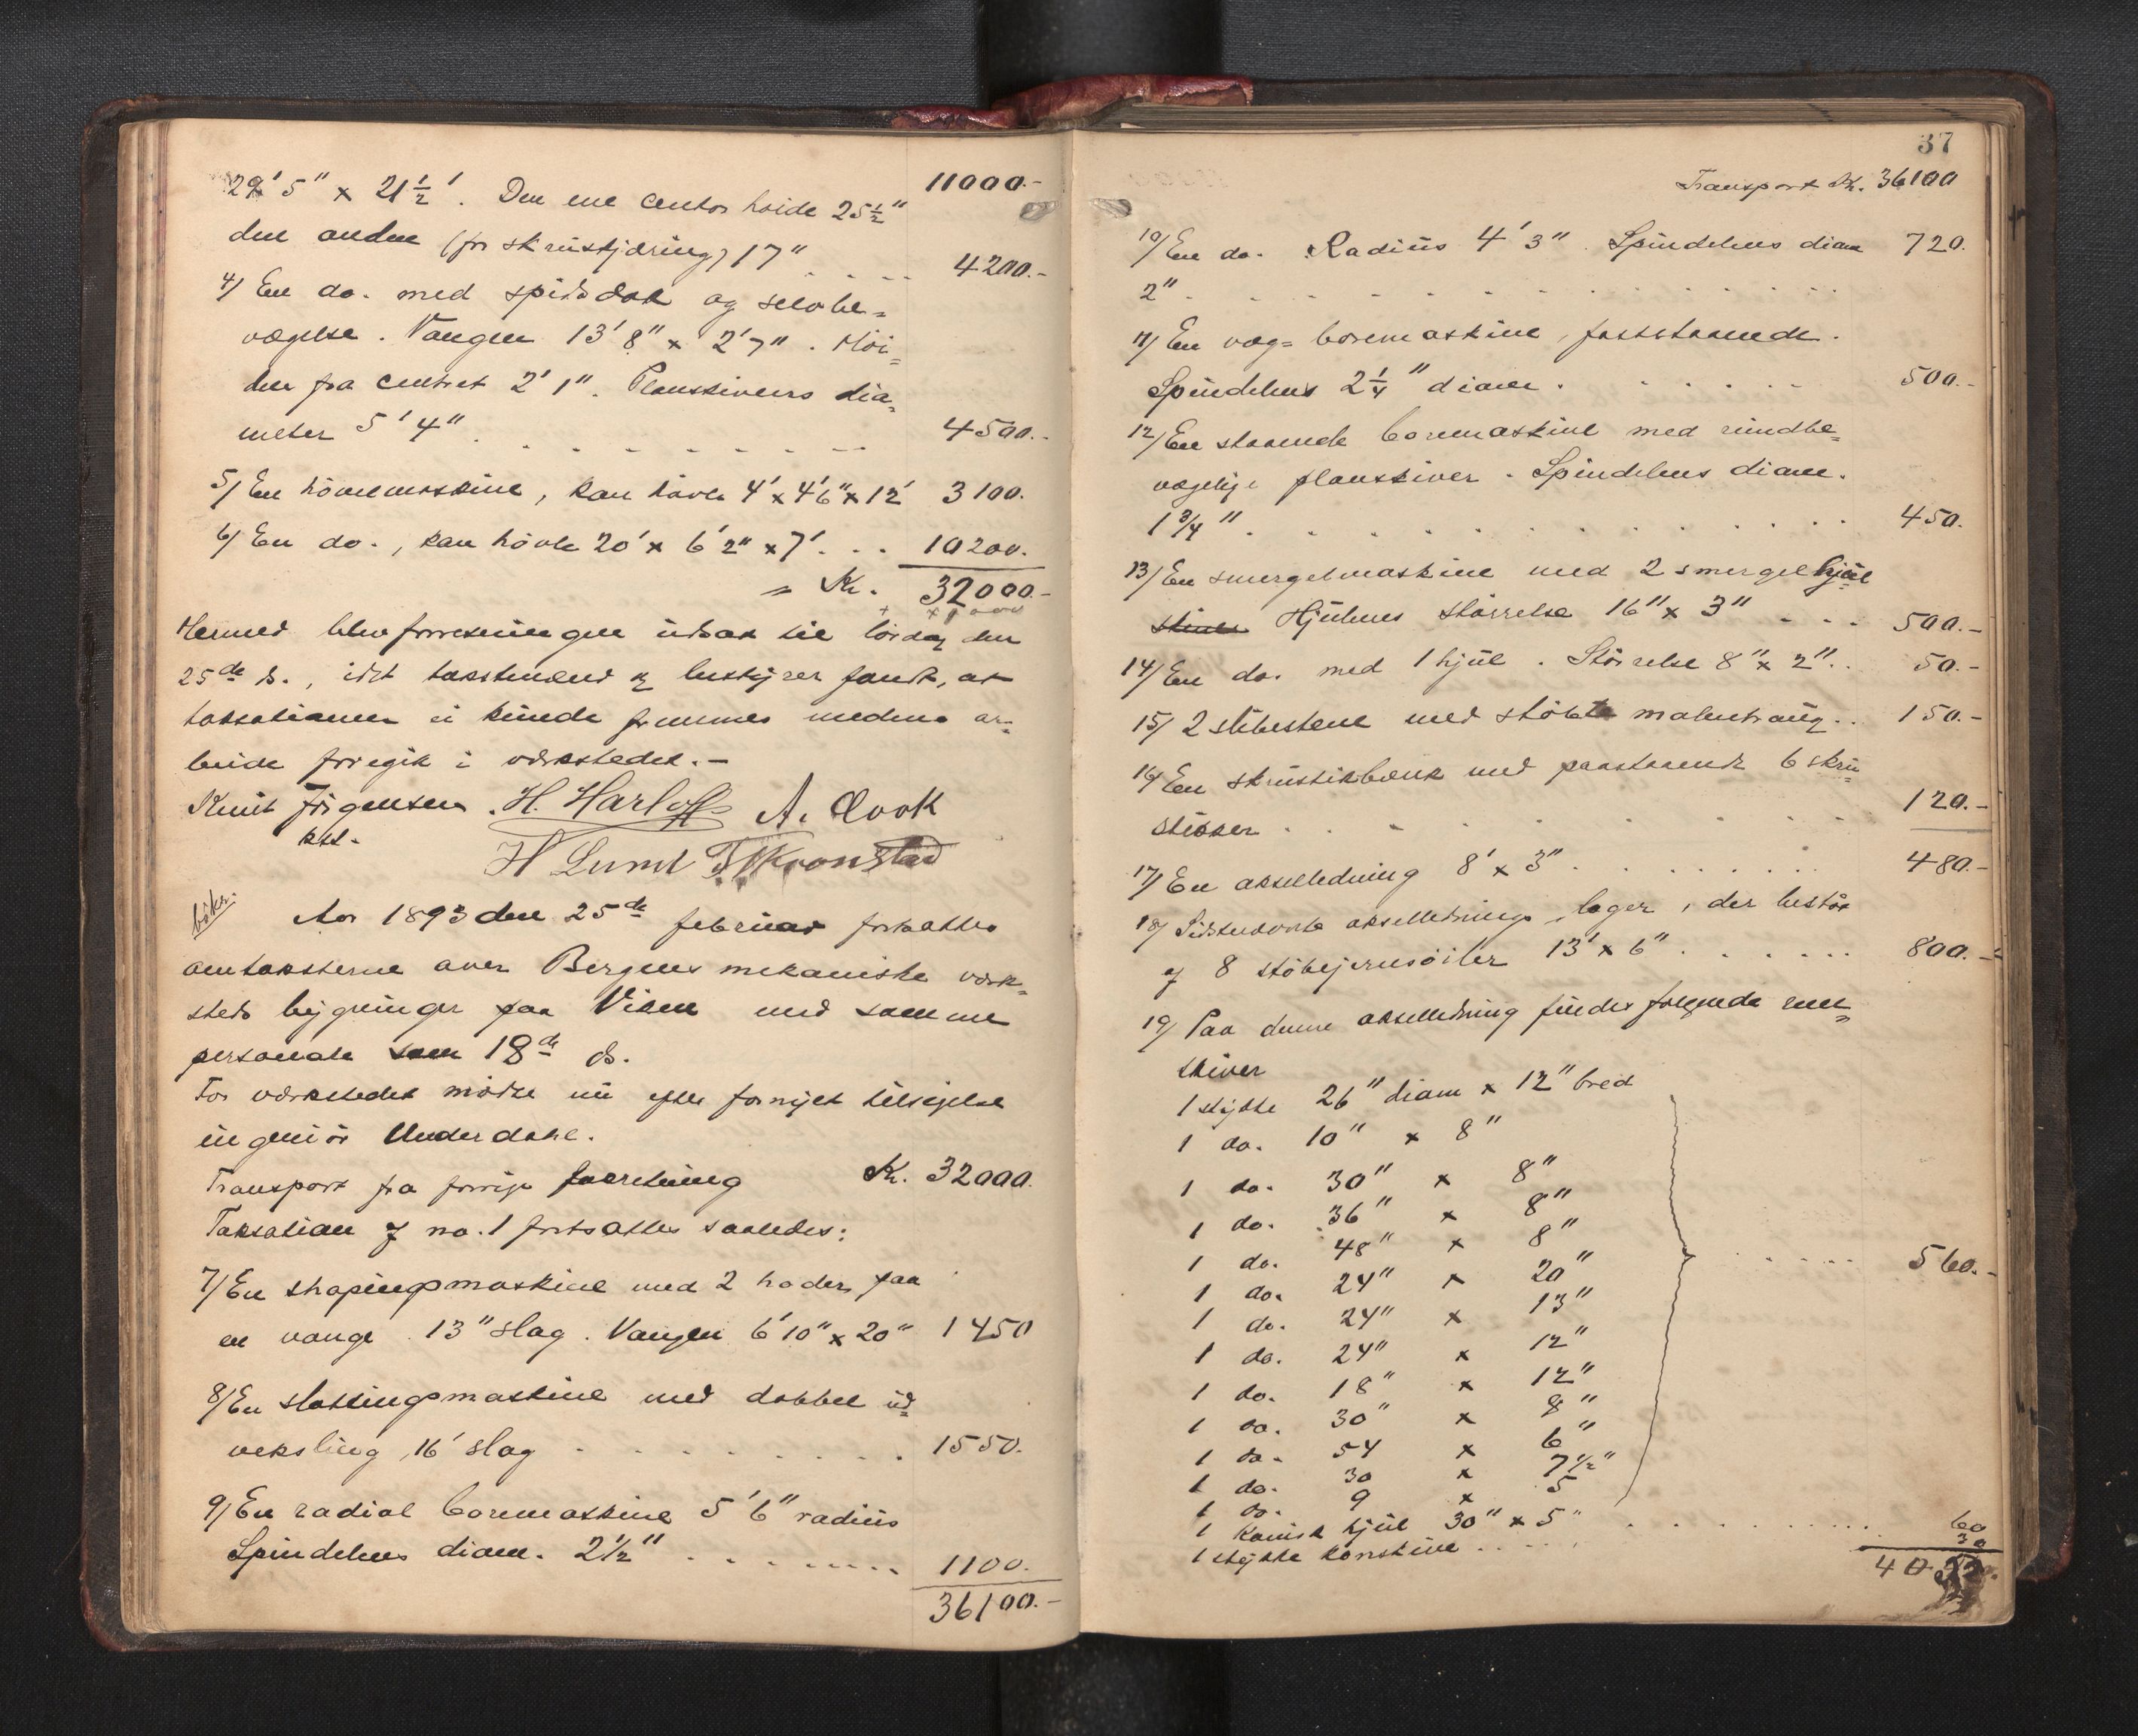 29' 5" x 21 1/2'. Den ene centerhøide 25 1/2" 11000.-
den anden (for skrueskjæring) 17" . . . . 4200.-
4/ En do. med spidsdok og selvbe=
vægelse. Vangen 13' 8" x 2' 7". Høi=
den fra centret 2' 1". Planskivens dia=
meter 5' 4" . . . . . . . . 4500.-
5/ En høvlemaskine, kan høvle 4' x 4' 6" x 12' 3100.
6/ En do., kan høvle 20' x 6' 2" x 7' . . . 10200.
= Kr. 32000.-
Hermed blev forretningen udsat til lørdag den
25de ds., idet takstmænd og bestyrer fandt, at
taksationen ei kunde fremmes medens ar=
beide foregik i værkstedet. -
Knut Jørgensen H. Harloff A. Cook
kst.
H Lund T Kronstad
Aar 1893 den 25de februar fortsattes
omtaksterne over Bergens mekaniske værk=
steds bygninger paa Viken med samme
personale som 18de ds.
For værkstedet mødte nu efter fornyet tilsigelse
ingeniør Underdahl.
Transport fra forrige forretning Kr. 32000.
Taksation af no. 1 fortsattes saaledes:
7/ En shapingmaskine med 2 hoder paa
en vange. 13" slag. Vangen 6' 10" x 20" 1450
8/ En slottingsmaskine med dobbel ud=
veksling, 16' slag . . . . . . . 1550.
9/ En radial boremaskine 5' 6" radius
Spindelens diam. 2 1/2" . . . . . . . 1100.
36100.-
37
Transport Kr. 36100
10/ En do. Radius 4' 3". Spindelens diam 720.
2" . . . . . . . . . . . . .
11/ En væg= boremaskine, faststaaende.
Spindelens 2 1/4" diam. . . . . . . 500.-
12/ En staaende boremaskine med rundbe=
vægelige planskiver. Spindelens diam.
1 3/4" . . . . . . . . . . . . . 450.
13/ En smergelmaskine med 2 smergelhjul
skiver Hjulenes størrelse 16" x 3" . . . . 500.-
14/ En do. med 1 hjul. Størrelse 8" x 2" . . 50.-
15/ 2 slibestene med støbte malmtraug . . 150.-
16/ En skrustikbænk med paastaaende 6 skru=
stikker . . . . . . . . . . . 120.-
17/ En akselledning 8' x 3" . . . . . . . . 480.-
18/ Sidstnævnte aksellednings lager, der bestaar
af 8 støbejernsøiler 13' x 6" . . . . . . 800.-
19/ Paa denne akselledning findes følgende rem=
skiver
1 stykke 26" diam x 12" bred
1 do. 10" x 8"
1 do. 30" x 8"
1 do. 36" x 8"
1 do. 48" x 8"
1 do. 24" x 20" . . . . . 560.-
1 do. 24" x 13"
1 do. 24" x 12"
1 do. 18" x 12"
1 do. 30" x 8"
1 do. 54 x 6"
1 do. 30 x 7 1/2"
1 do. 9 x 5
1 konisk hjul 30" x 5" . . . . . . . . . 60
1 stykke konskive . . . . . 30